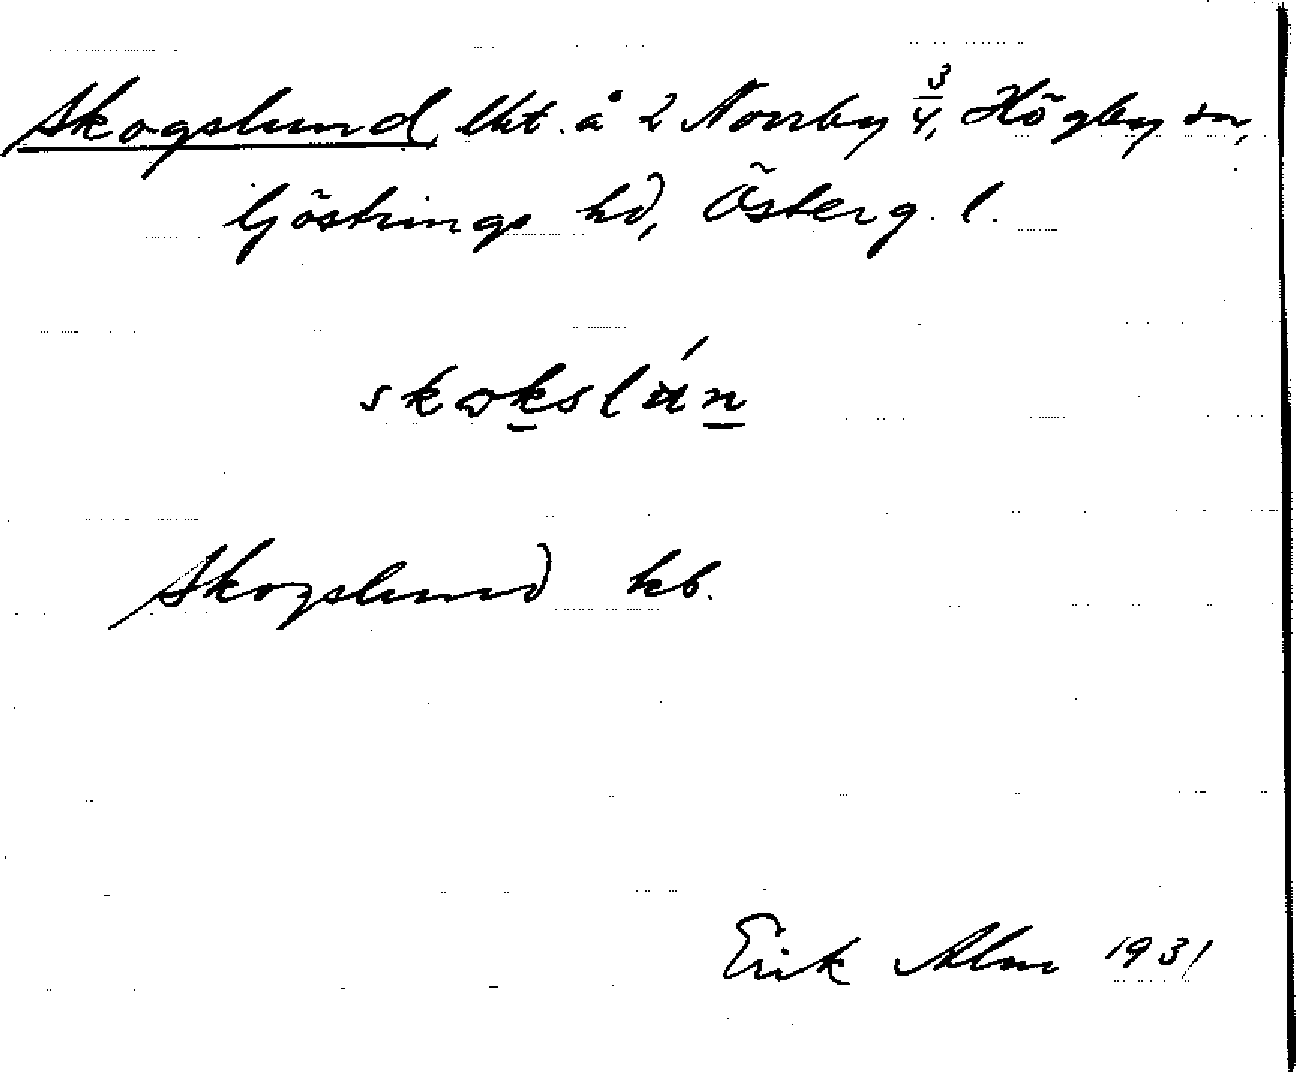 Skogslund lht. å 2 Norrby 3/4, Högby sn,
Göstrings hd, Österg. l.
skɷkslún
Skogslund kb.
Erik Alm 1931